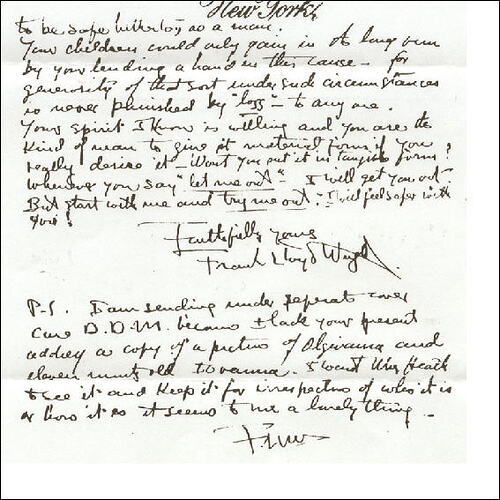 New York
to be safe hitherto as a man.
Your children could only gain in the long run
by your lending a hand in this cause - for
generosity of that sort under such circumstances
is never punished by "loss" - to any one.
Your spirit I know is willing and you are the
kind of man to give it material form if you
really desire it - Won't you put it in tangible form?
whenever you say "let me out" - I will get you out -
But start with me and try me out. I will feel safer with
you!
Faithfully yours
Frank Lloyd Wright
P.S. I am sending under seperate cover
care D.D.M. because I lack your present
address a copy of a picture of Olgivanna and
eleven months old Iovanna. I want Mrs Heath
to see it and keep it for irrespective of who it is
or how it is it seems to me a lovely thing -
F.Ll.W